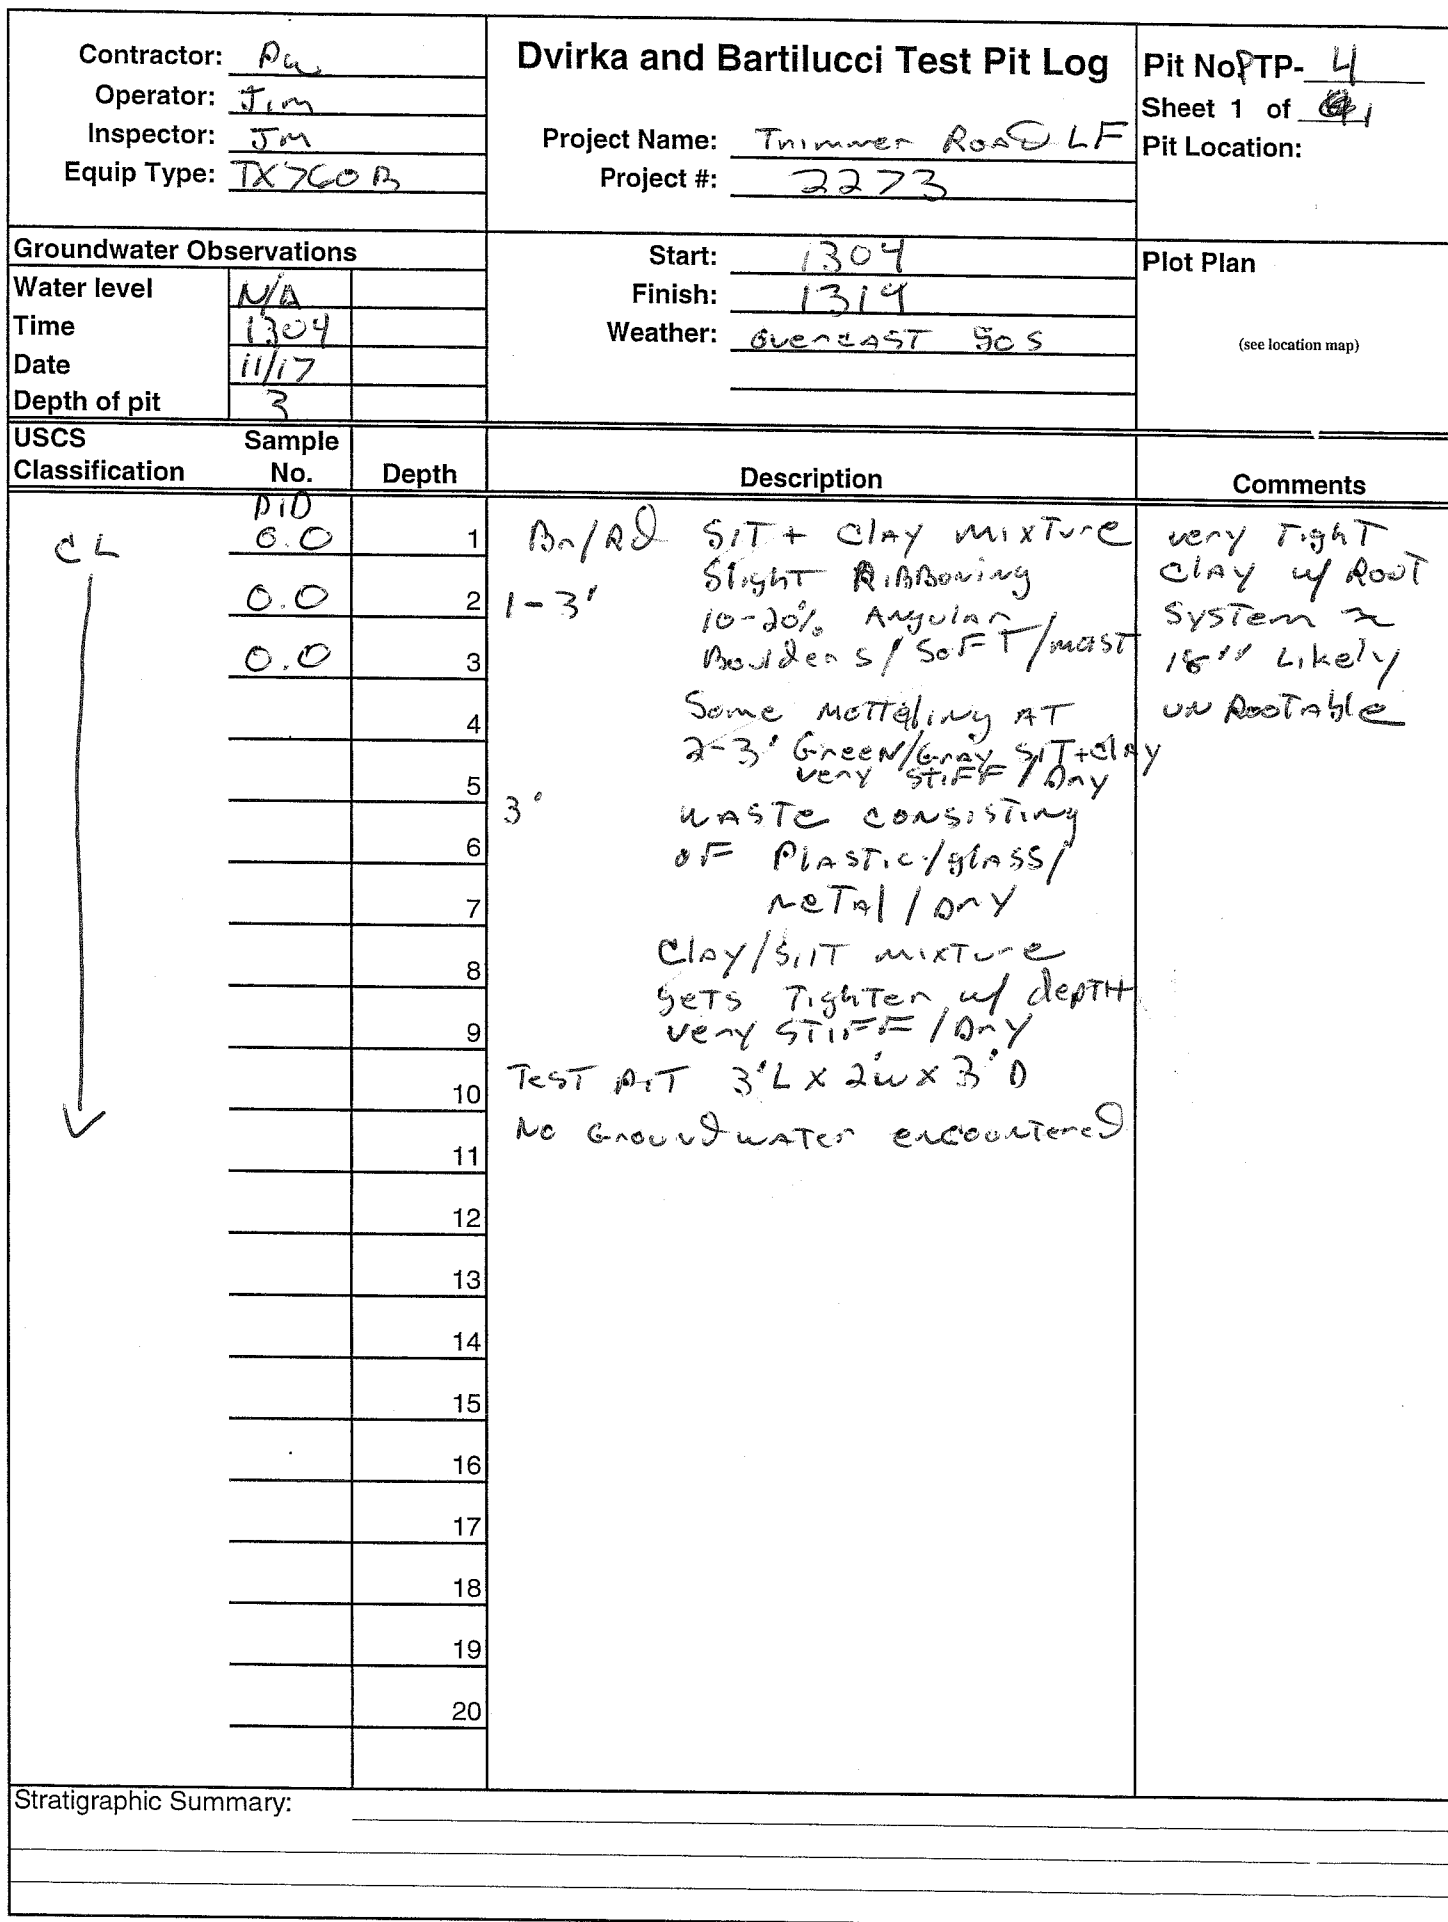 Contractor: PW
Operator: Jim
Inspector: JM
Equip Type: TX760B
Dvirka and Bartilucci Test Pit Log
Project Name: Trimmer Road LF
Project #: 2273
Pit No PTP- 4
Sheet 1 of 1
Pit Location:
Groundwater Observations
Water level N/A
Time 1304
Date 11/17
Depth of pit 3
Start: 1304
Finish: 1319
Weather: Overcast 50s
Plot Plan
(see location map)
USCS Classification
Sample No.
Depth
Description
Comments
PID
CL
0.0 1
0.0 2
0.0 3
4
5
6
7
8
9
10
11
12
13
14
15
16
17
18
19
20
Br/Rd SiT + Clay mixTure
Slight Ribboning
1-3'
10-20% Angular
Boulders/SoFT/moist
Some Motteling AT
2-3' Green/Gray SiT+Clay
very STiFF/Dry
3' WASTe consisTing
oF PlasTic/glass/
meTal/Dry
Clay/SilT mixTure
geTs TighTer w/ depTH
very STiFF/Dry
TesT piT 3'L x 2'w x 3'D
No Groundwater encountered
very TighT
Clay w/ RooT
SysTem ~
18" Likely
un RooTable
Stratigraphic Summary: